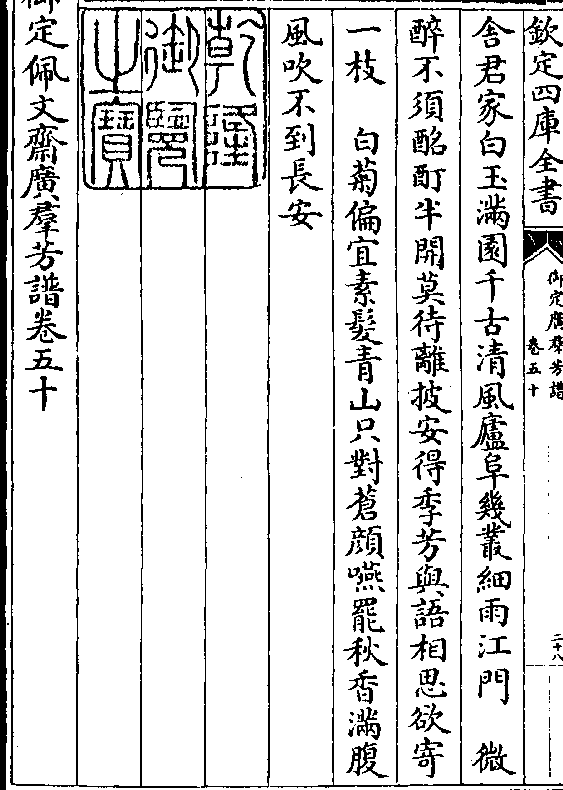 欽定四庫全書
御定廣羣芳譜
卷五十
二十八
舍君家白玉滿園千古清風廬阜幾叢細雨江門　微
醉不須酩酊半開莫待離披安得季芳與語相思欲寄
一枝　白菊偏宜素髮青山只對蒼顔嚥罷秋香滿腹
風吹不到長安
乾隆
御覽
之寶
御定佩文齋廣羣芳譜卷五十